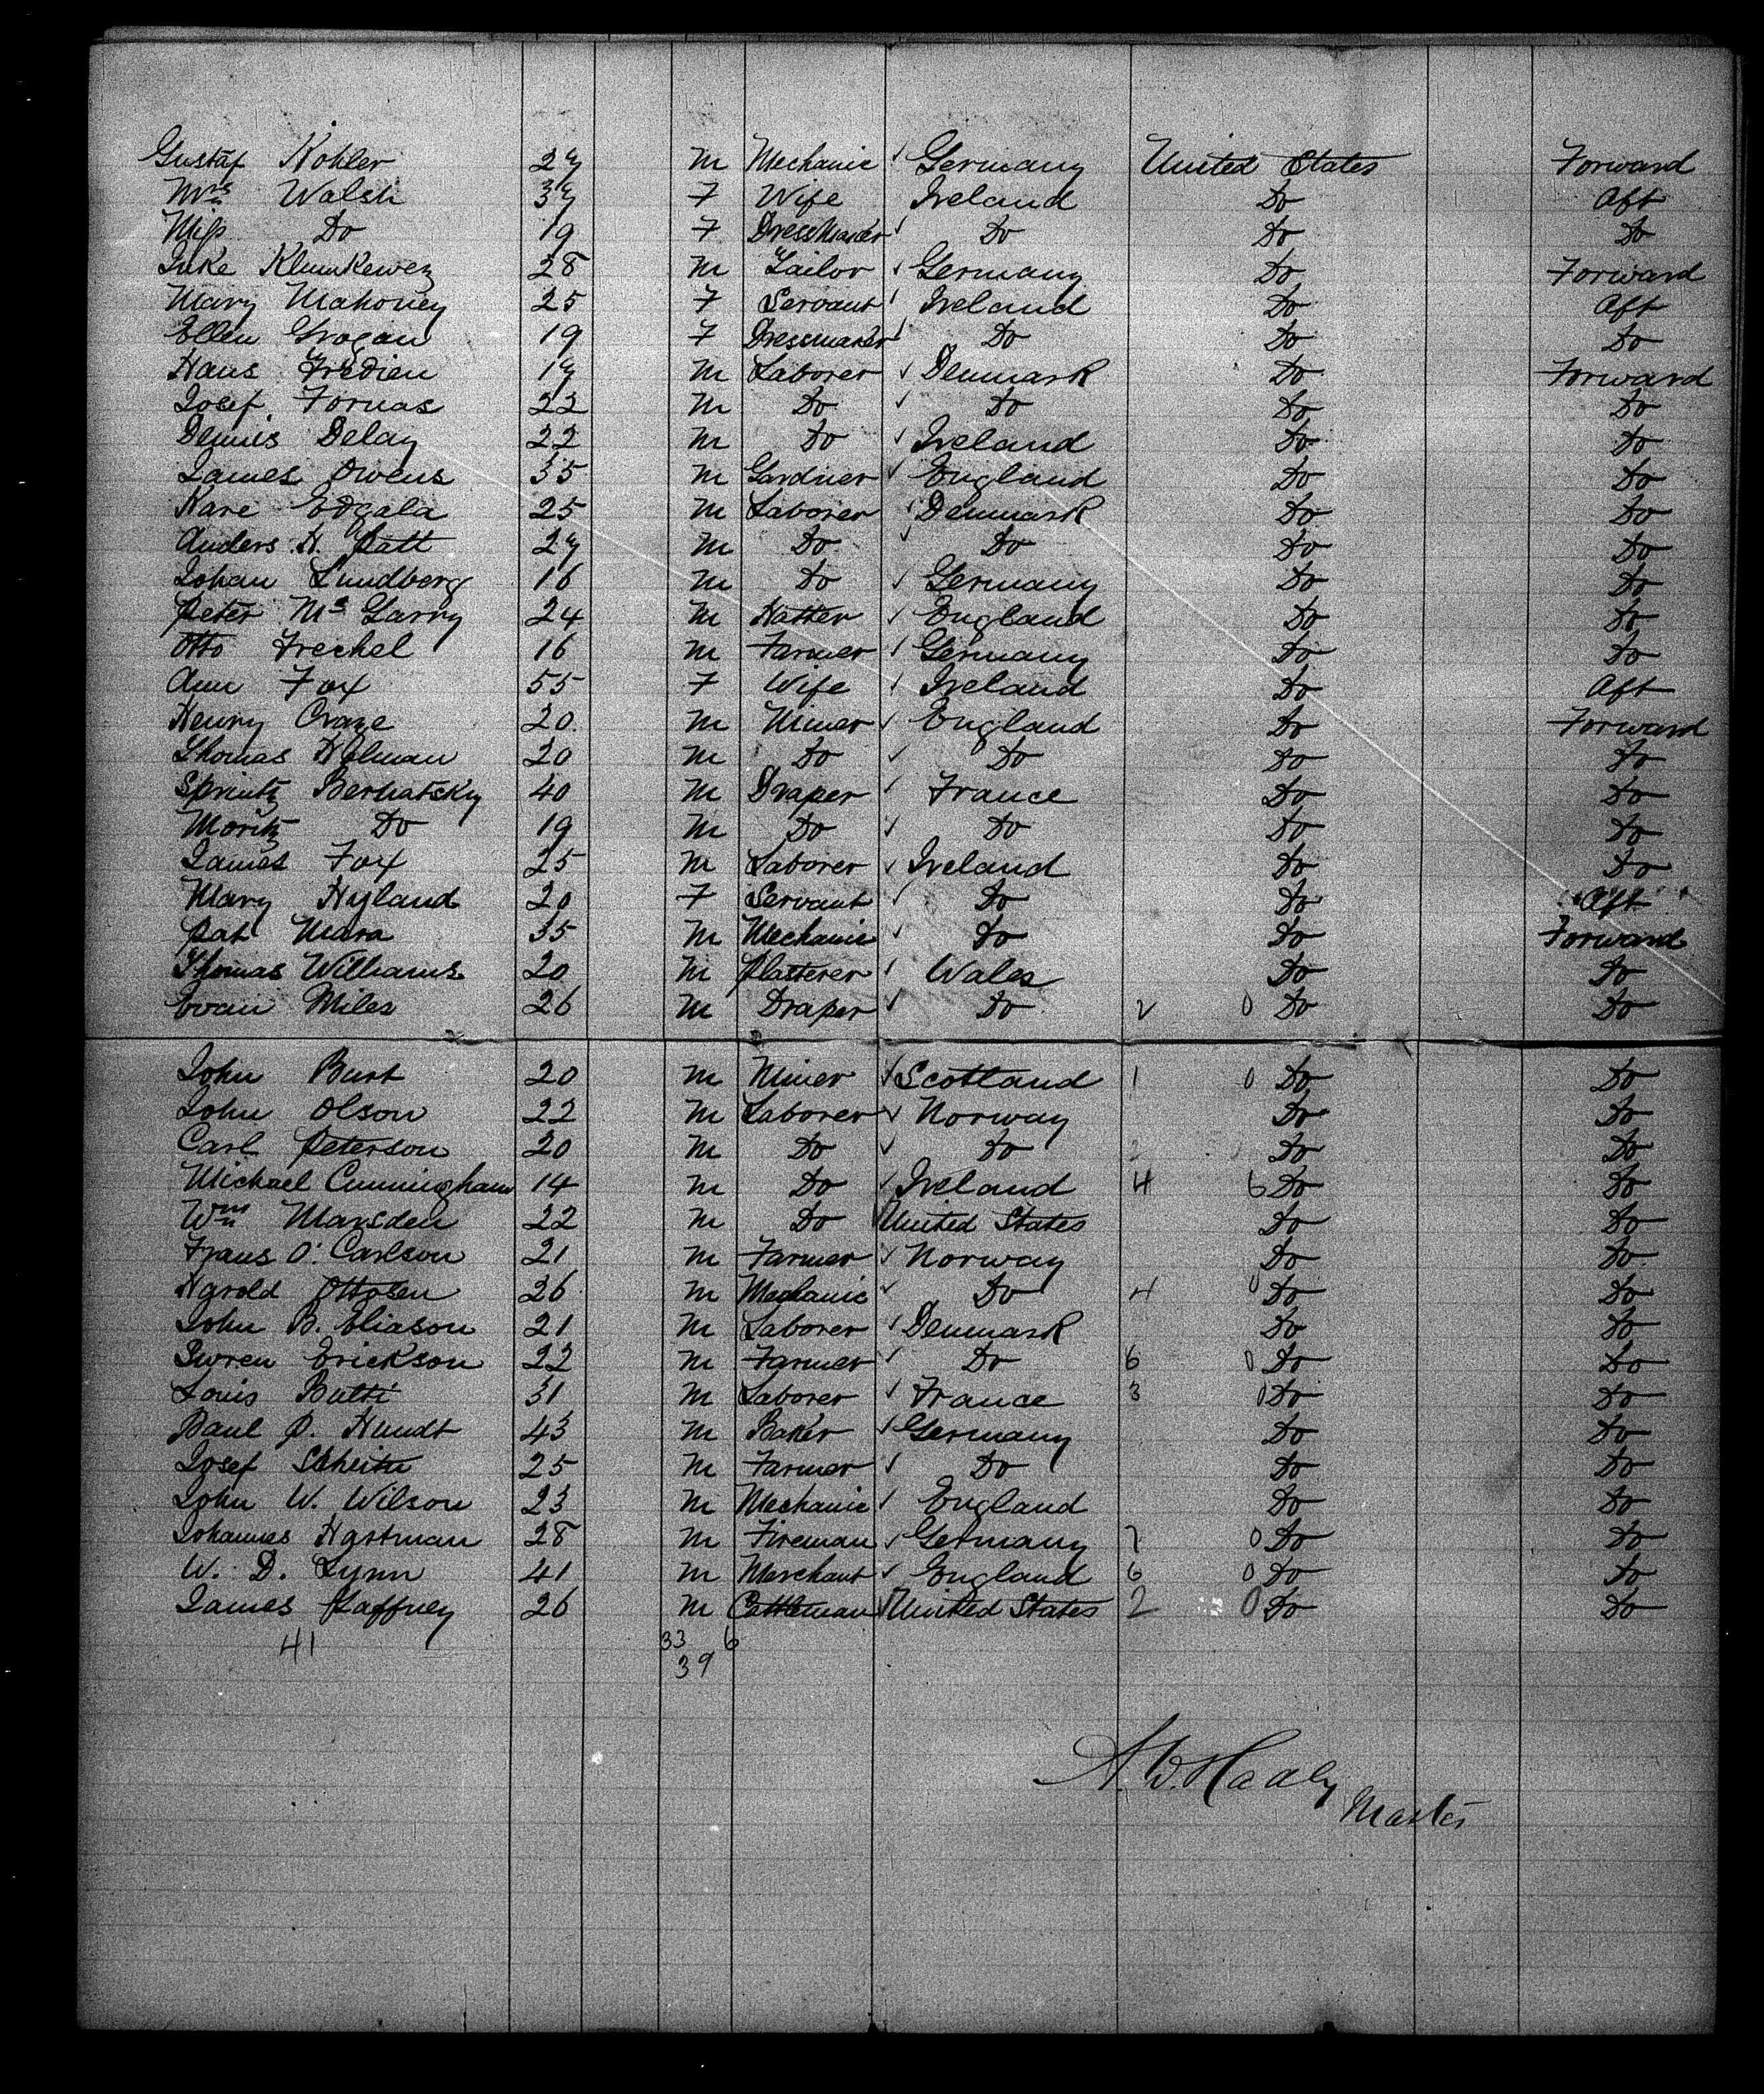 Gustaf Kohler 27 M Mechanic ✓ Germany United States Forward
Mrs Walsh 37 F Wife Ireland Do Aft
Miss Do 19 F Dressmaker ✓ Do Do Do
28 M Tailor ✓ Germany Do Forward
Mary Mahoney 25 F Servant ✓ Ireland Do Aft
Ellen Grogan 19 F Dressmaker ✓ Do Do Do
Hans Fredien 17 M Laborer ✓ Denmark Do Forward
Josef Fornas 22 M Do ✓ Do Do Do
Dennis Delay 22 M Do ✓ Ireland Do Do
James Owens 35 M Gardner ✓ England Do Do
Kare Edgala 25 M Laborer ✓ Denmark Do Do
Anders H. Patt 27 M Do ✓ Do Do Do
Johan Lundberg 16 M Do ✓ Germany Do Do
Peter Mc Garry 24 M Hatter ✓ England Do Do
Otto Frechel 16 M Farmer ✓ Germany Do Do
Ann Fox 55 F Wife ✓ Ireland Do Aft
Henry Craze 20 M Miner ✓ England Do Forward
Thomas Holman 20 M Do ✓ Do Do Do
Sprintz Bernatsky 40 M Draper ✓ France Do Do
Moritz Do 19 M Do ✓ Do Do Do
James Fox 25 M Laborer ✓ Ireland Do Do
Mary Hyland 20 F Servant ✓ Do Do Aft
Pat Mara 35 M Mechanic ✓ Do Do Forward
Thomas Williams 20 M Plasterer ✓ Wales Do Do
Evan Miles 26 M Draper ✓ Do 2 0 Do Do
John Burt 20 M Miner ✓ Scotland 1 0 Do Do
John Olson 22 M Laborer ✓ Norway Do Do
Carl Peterson 20 M Do ✓ Do Do Do
Michael Cunningham 14 M Do ✓ Ireland 4 6 Do Do
Wm Marsden 22 M Do ✓ United States Do Do
Frans O. Carlson 21 M Farmer ✓ Norway Do Do
Harold Ottosen 26 M Mechanic ✓ Do 4 0 Do Do
John B. Eliason 21 M Laborer ✓ Denmark Do Do
Swren Erickson 22 M Farmer ✓ Do 6 0 Do Do
Louis Butti 31 M Laborer ✓ France 3 0 Do Do
Paul P. Hundt 43 M Baker ✓ Germany Do Do
Josef 25 M Farmer ✓ Do Do Do
John W. Wilson 23 M Mechanic ✓ England Do Do
Johannes Hartman 28 M Fireman ✓ Germany 7 0 Do Do
W. D. Lynn 41 M Merchant ✓ England 6 0 Do Do
James Gaffney 26 M Cattleman ✓ United States 2 0 Do Do
41 33 6
39
Master